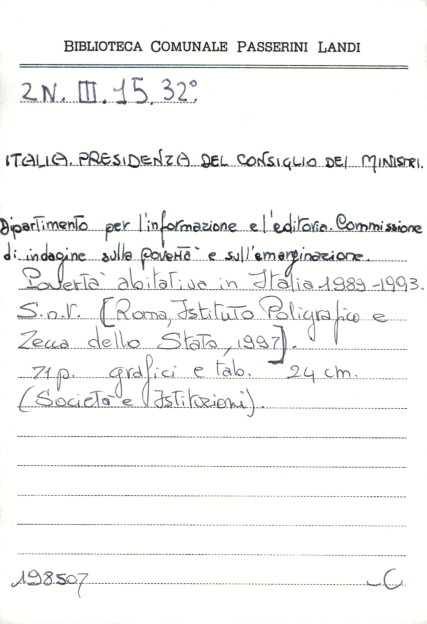 BIBLIOTECA COMUNALE PASSERINI LANDI
2N. III. 15. 32°.
ITALIA. PRESIDENZA DEL CONSIGLIO DEI MINISTRI.
Dipartimento per l'informazione e l'editoria. Commissione
di indagine sulla povertà e sull'emarginazione.
Povertà abitativa in Italia 1989-1993.
S.n.t. [Roma, Istituto Poligrafico e
Zecca dello Stato, 1997].
71 p. grafici e tab. 24 cm.
(Società e Istituzioni).
198507
C